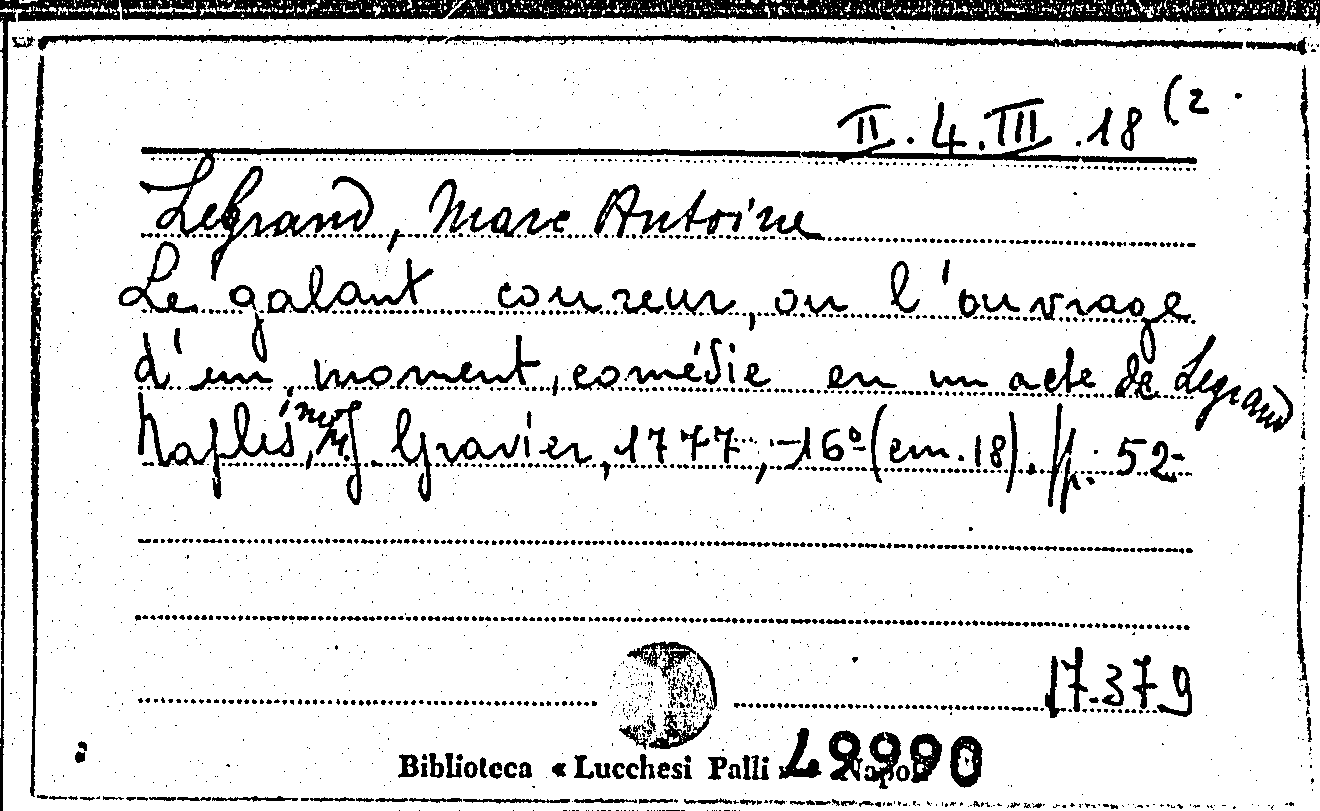 II.4.III.18 (2.
Legrand, Marc Antoine
Le galant coureur, ou l'ouvrage
d'un moment, comédie en un acte de Legrand
Naples, J. Gravier, 1777, -16º (cm. 18). pp. 52-
17.379
Biblioteca « Lucchesi Palli » Napoli
49990